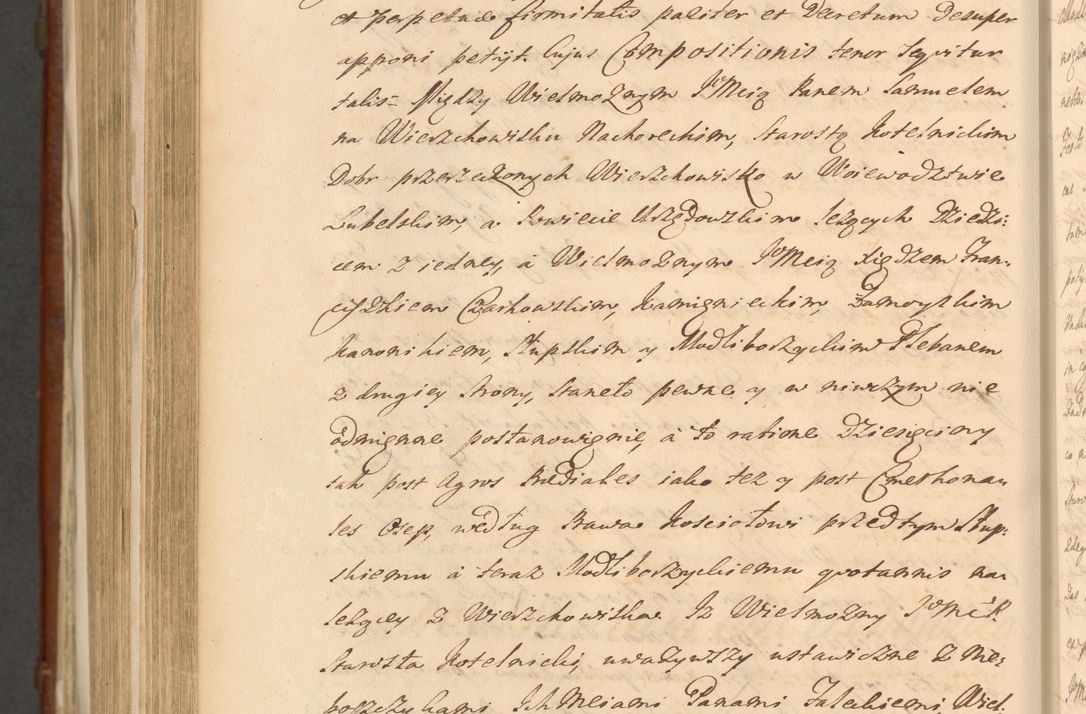 et perpetuæ firmitatis pariter et Decretum Desuper
apponi petijt. Cujus Compositionis tenor sequitur
talis = Między Wielmożnym JoMcią Panem Samuelem
na Wierzchowisku Nachoreckim, Starostą Kotelnickim
Dobr przerzeczonych Wierzchowisko w Woiewodztwie
Lubelskim, a Powiecie Urzędowskim leżących Dziedzi:
cem z iedney, á Wielmożnym JoMcią Xiędzem Fran:
ciszkiem Czaikowskim, Kamignieckim, Zamoyskim
kanonikiem, Słupskim y Modliborzyckim Plebanem
z drugiey strony, staneło pewne y w niwczym nie
odmignne postanowignie, á to ratione Dziesięciny
tak post Agros Prædiales iako tez y post Cmethona:
les Osep, według Prawa Kosciołowi przedtym Słup:
skiemu á teraz Modliborzyckiemu quotannis na:
leżącey z Wierzchowiska Iz Wielmożny
Starosta Kotelnicki, uważywszy ustawiczne z Nie:
boszczykami Ich Mciami Panami Zaleskiemi, Wiel: